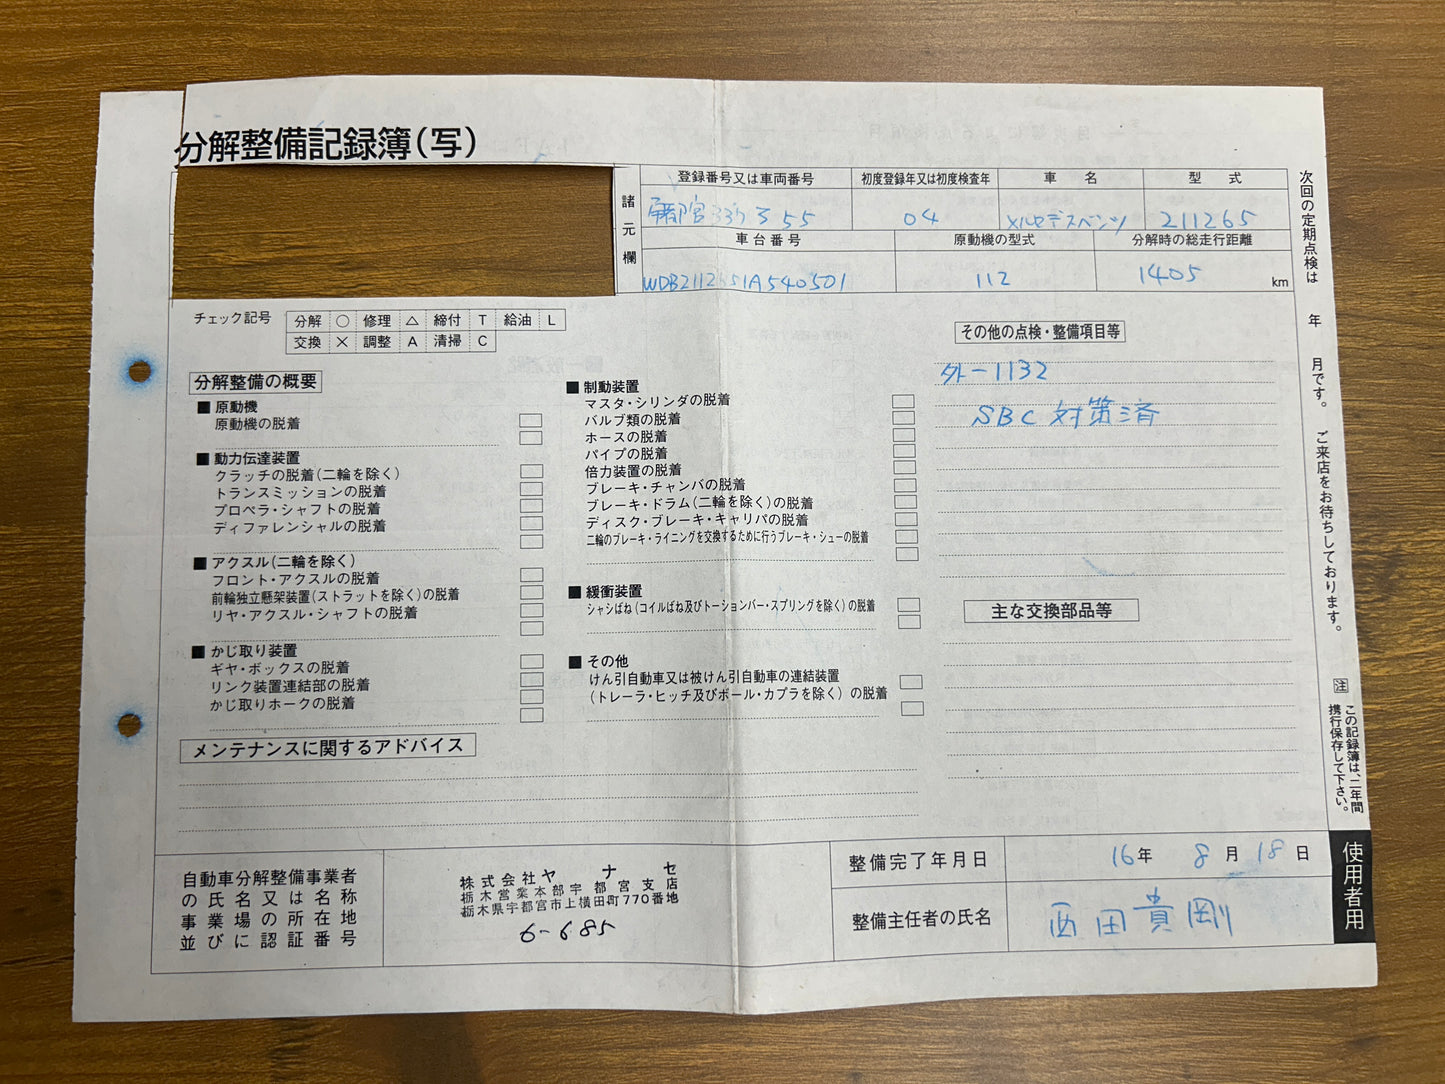 分解整備記録簿(写)
諸元欄
登録番号又は車両番号
初度登録年又は初度検査年
車名
型式
宇都宮 337 ヌ 55
04
メルセデスベンツ
211265
車台番号
原動機の型式
分解時の総走行距離
WDB2112651A540501
112
1405 km
チェック記号
分解 ○ 修理 △ 締付 T 給油 L
交換 × 調整 A 清掃 C
分解整備の概要
■ 原動機
原動機の脱着
■ 動力伝達装置
クラッチの脱着(二輪を除く)
トランスミッションの脱着
プロペラ・シャフトの脱着
ディファレンシャルの脱着
■ アクスル(二輪を除く)
フロント・アクスルの脱着
前輪独立懸架装置(ストラットを除く)の脱着
リヤ・アクスル・シャフトの脱着
■ かじ取り装置
ギヤ・ボックスの脱着
リンク装置連結部の脱着
かじ取りホークの脱着
■ 制動装置
マスタ・シリンダの脱着
バルブ類の脱着
ホースの脱着
パイプの脱着
倍力装置の脱着
ブレーキ・チャンバの脱着
ブレーキ・ドラム(二輪を除く)の脱着
ディスク・ブレーキ・キャリパの脱着
二輪のブレーキ・ライニングを交換するために行うブレーキ・シューの脱着
■ 緩衝装置
シャシばね(コイルばね及びトーションバー・スプリングを除く)の脱着
■ その他
けん引自動車又は被けん引自動車の連結装置
(トレーラ・ヒッチ及びボール・カプラを除く)の脱着
その他の点検・整備項目等
外-1132
SBC 対策済
主な交換部品等
メンテナンスに関するアドバイス
自動車分解整備事業者
の氏名又は名称
事業場の所在地
並びに認証番号
株式会社ヤナセ
栃木営業本部宇都宮支店
栃木県宇都宮市上横田町770番地
6-685
整備完了年月日
16年 8月18日
整備主任者の氏名
西田貴剛
次回の定期点検は 年 月です。 ご来店をお待ちしております。
注 この記録簿は、二年間
携行保存して下さい。
使用者用